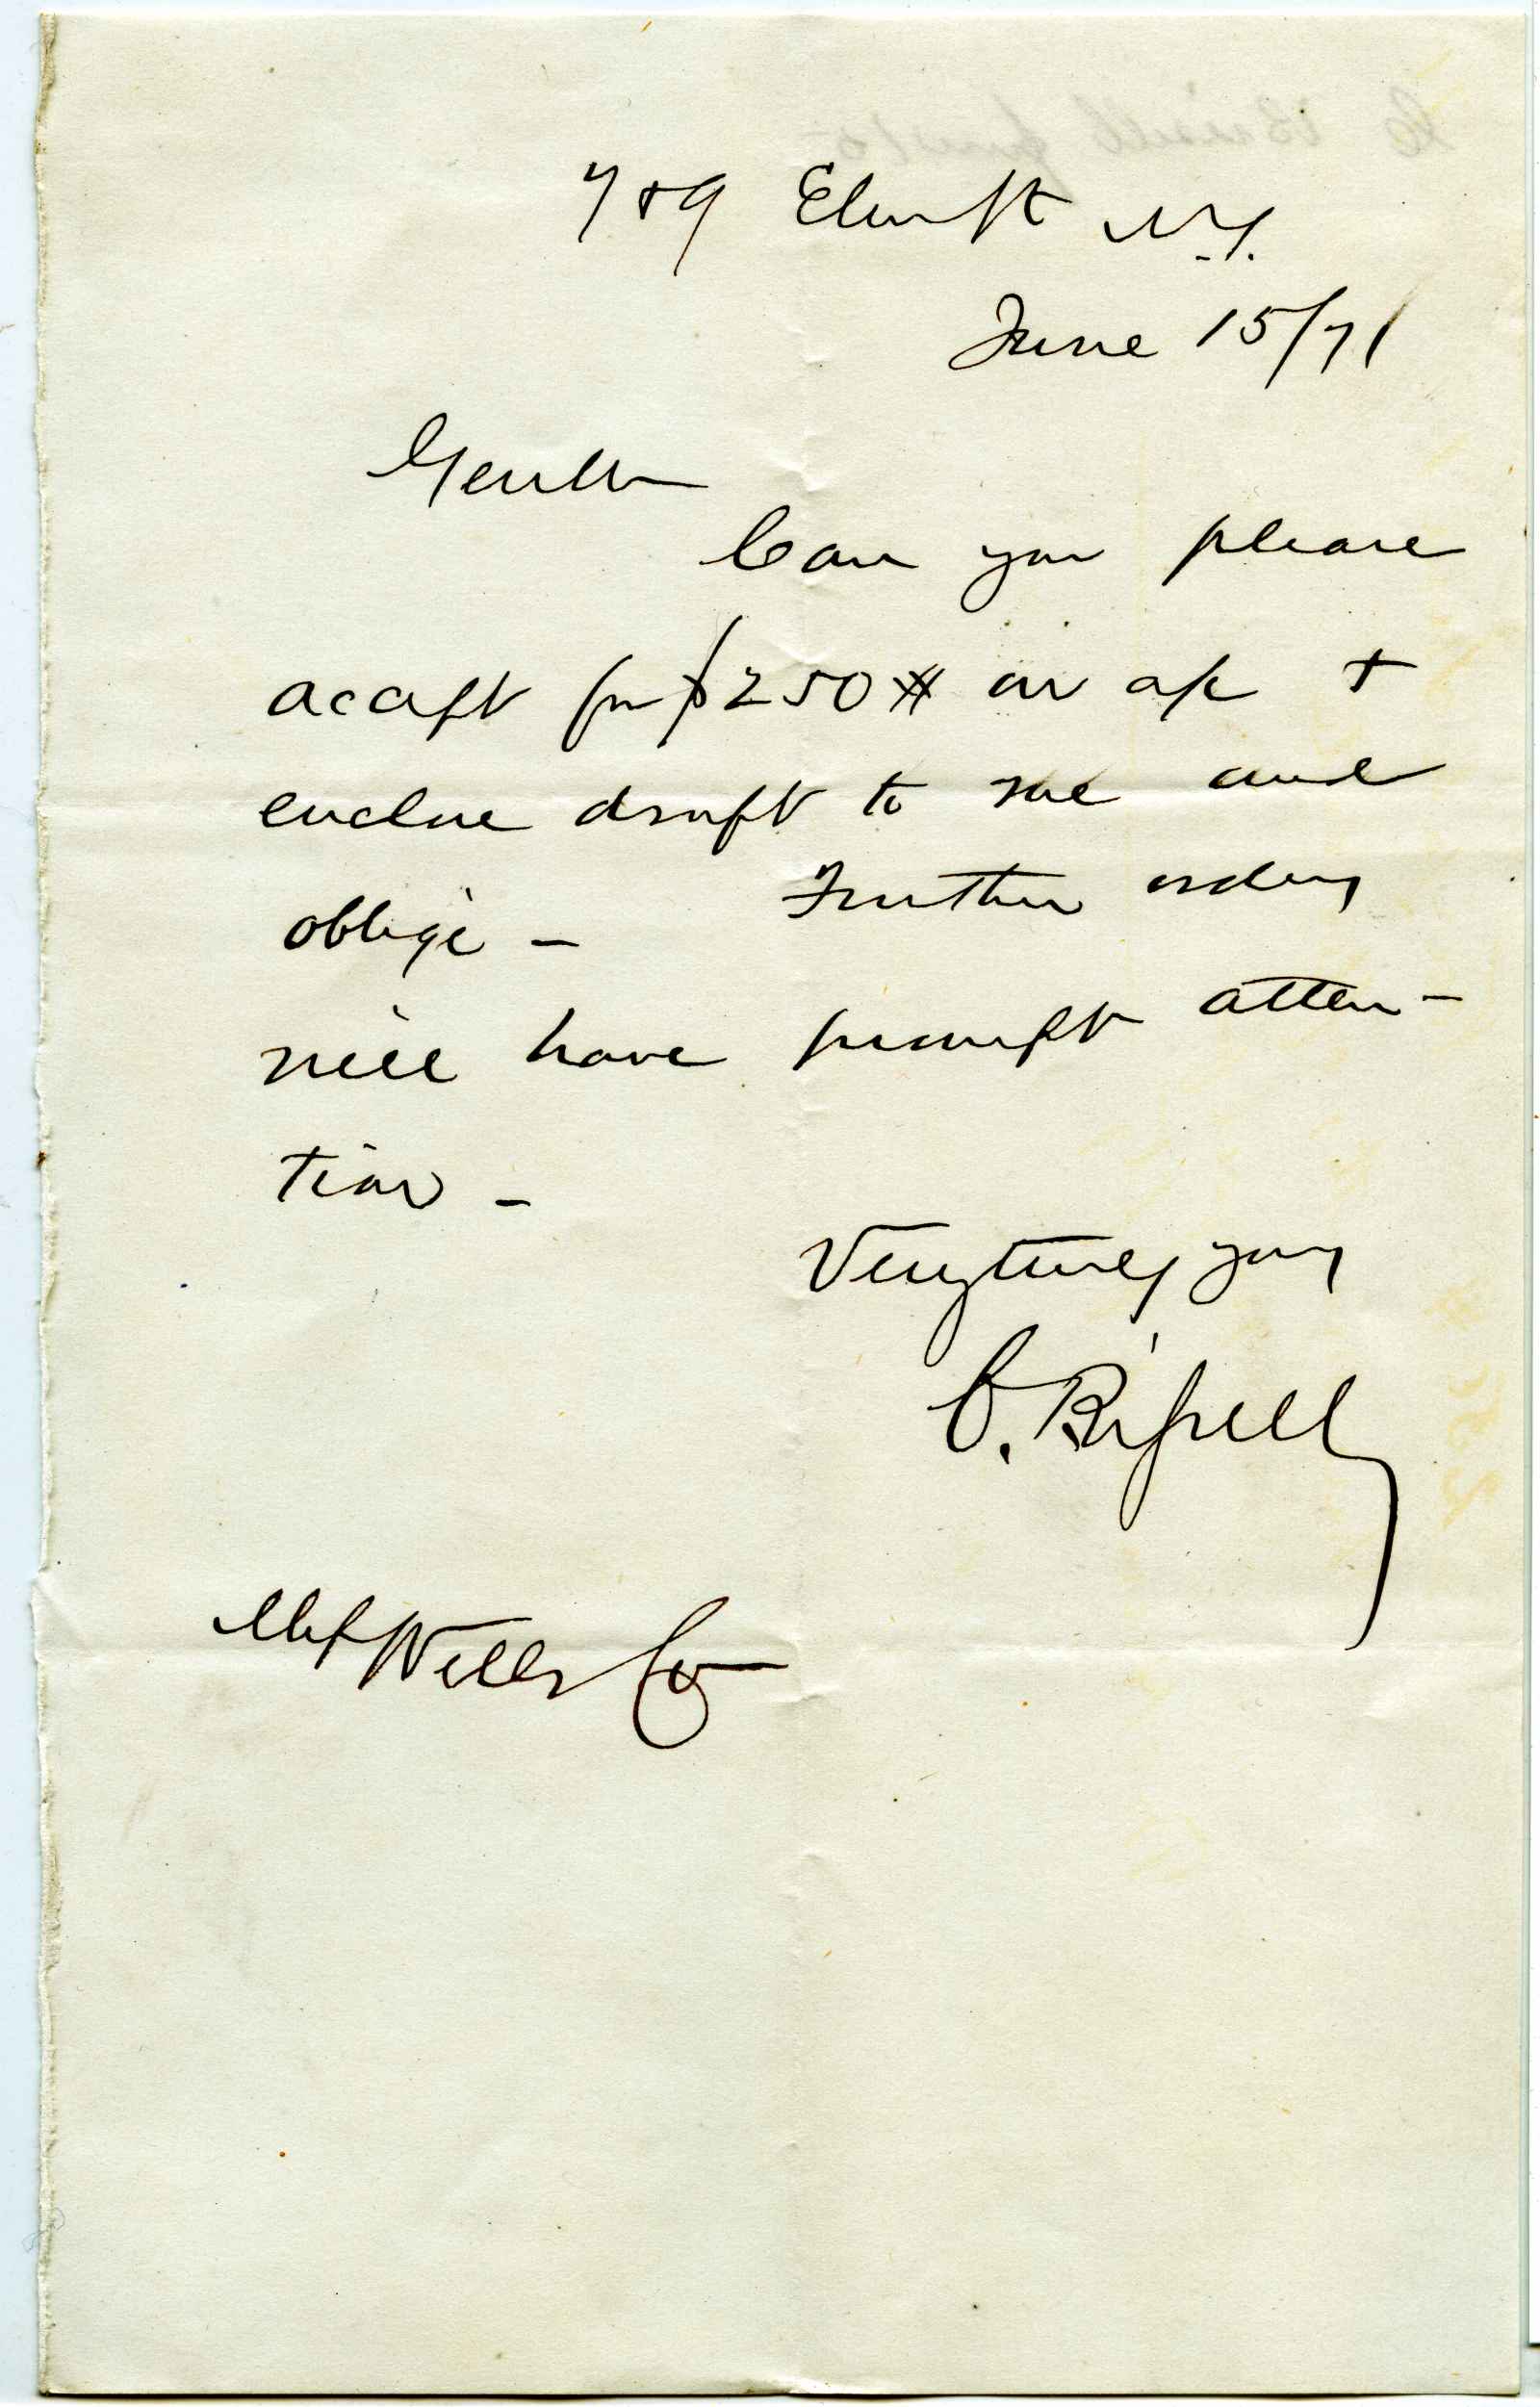 7 & 9 Elm St N.Y.
June 15/71
Gentln
Can you please
accept for $250# on a/c &
enclose draft to me and
oblige - Further orders
will have prompt atten-
tion -
Very truly yours
C. Bissell
Wells Co
C Bissell June 15